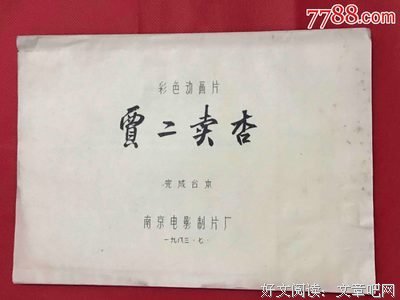 7788.com
中国收藏热线
彩色动画片
賈二卖杏
完成台本
南京电影制片厂
一九八三·七·
好文阅读：文章吧网